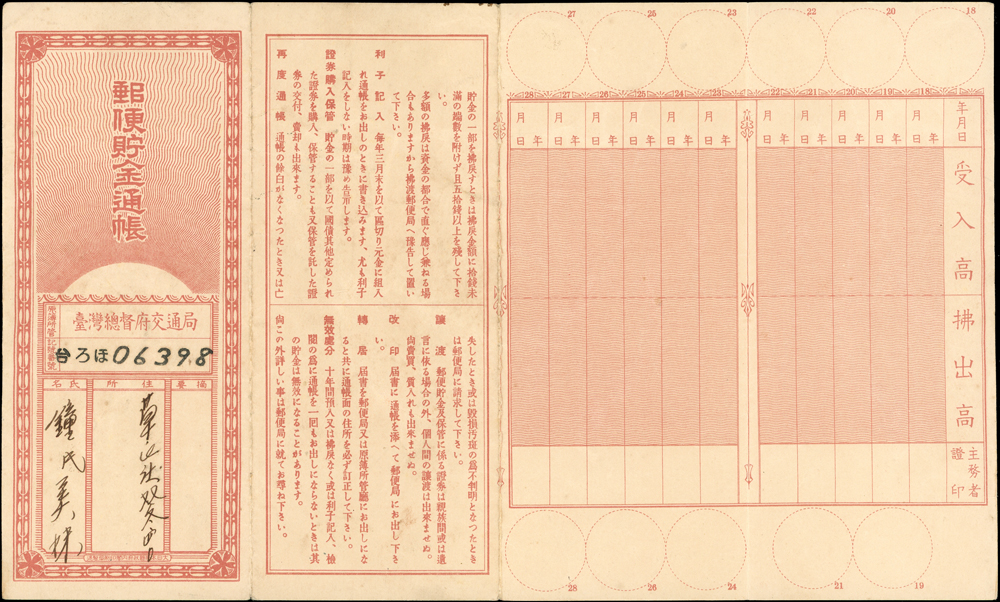 郵便貯金通帳
臺灣總督府交通局
原簿所管
記號番號
台ろほ06398
氏名
住所
摘要
鐘氏美妹
貯金の一部を拂戾すときは拂戾金額に拾錢未
滿の端數を附けず且五拾錢以上を殘して下さ
い。
多額の拂戾は資金の都合で直ぐ應じ兼ねる場
合もありますから拂渡郵便局へ豫告して置い
て下さい。
利子記入 每年三月末を以て區切り元金に組入
れ通帳をお出しのときに書き込みます、尤も利子
記入をしない時期は豫め告示します。
證券購入保管 貯金の一部を以て國債其他定められ
た證券を購入、保管することも又保管を託した證
券の交付、賣却も出來ます。
再度通帳 通帳の餘白がなくなつたとき又は亡
失したとき或は毀損汚斑の爲不判明となつたとき
は郵便局に請求して下さい。
讓渡 郵便貯金及保管に係る證券は親族間或は遺
言に依る場合の外、個人間の讓渡は出來ませぬ。
尙賣買、質入れも出來ませぬ。
改印 屆書に通帳を添へて郵便局にお出し下さ
い。
轉居 屆書を郵便局又は原簿所管廳にお出しにな
ると共に通帳面の住所を必ず訂正して下さい。
無效處分 十年間預入又は拂戾なく或は利子記入、檢
閱の爲に通帳を一回もお出しにならないときは其
の貯金は無效になることがあります。
尙この外詳しい事は郵便局に就てお尋ね下さい。
27 25 23 22 20 18
28 27 26 25 24 23 22 21 20 19 18
年月日
年月日
年月日
年月日
年月日
年月日
年月日
年月日
年月日
年月日
年月日
年月日
受入高
拂出高
主務者
證印
28 26 24 21 19